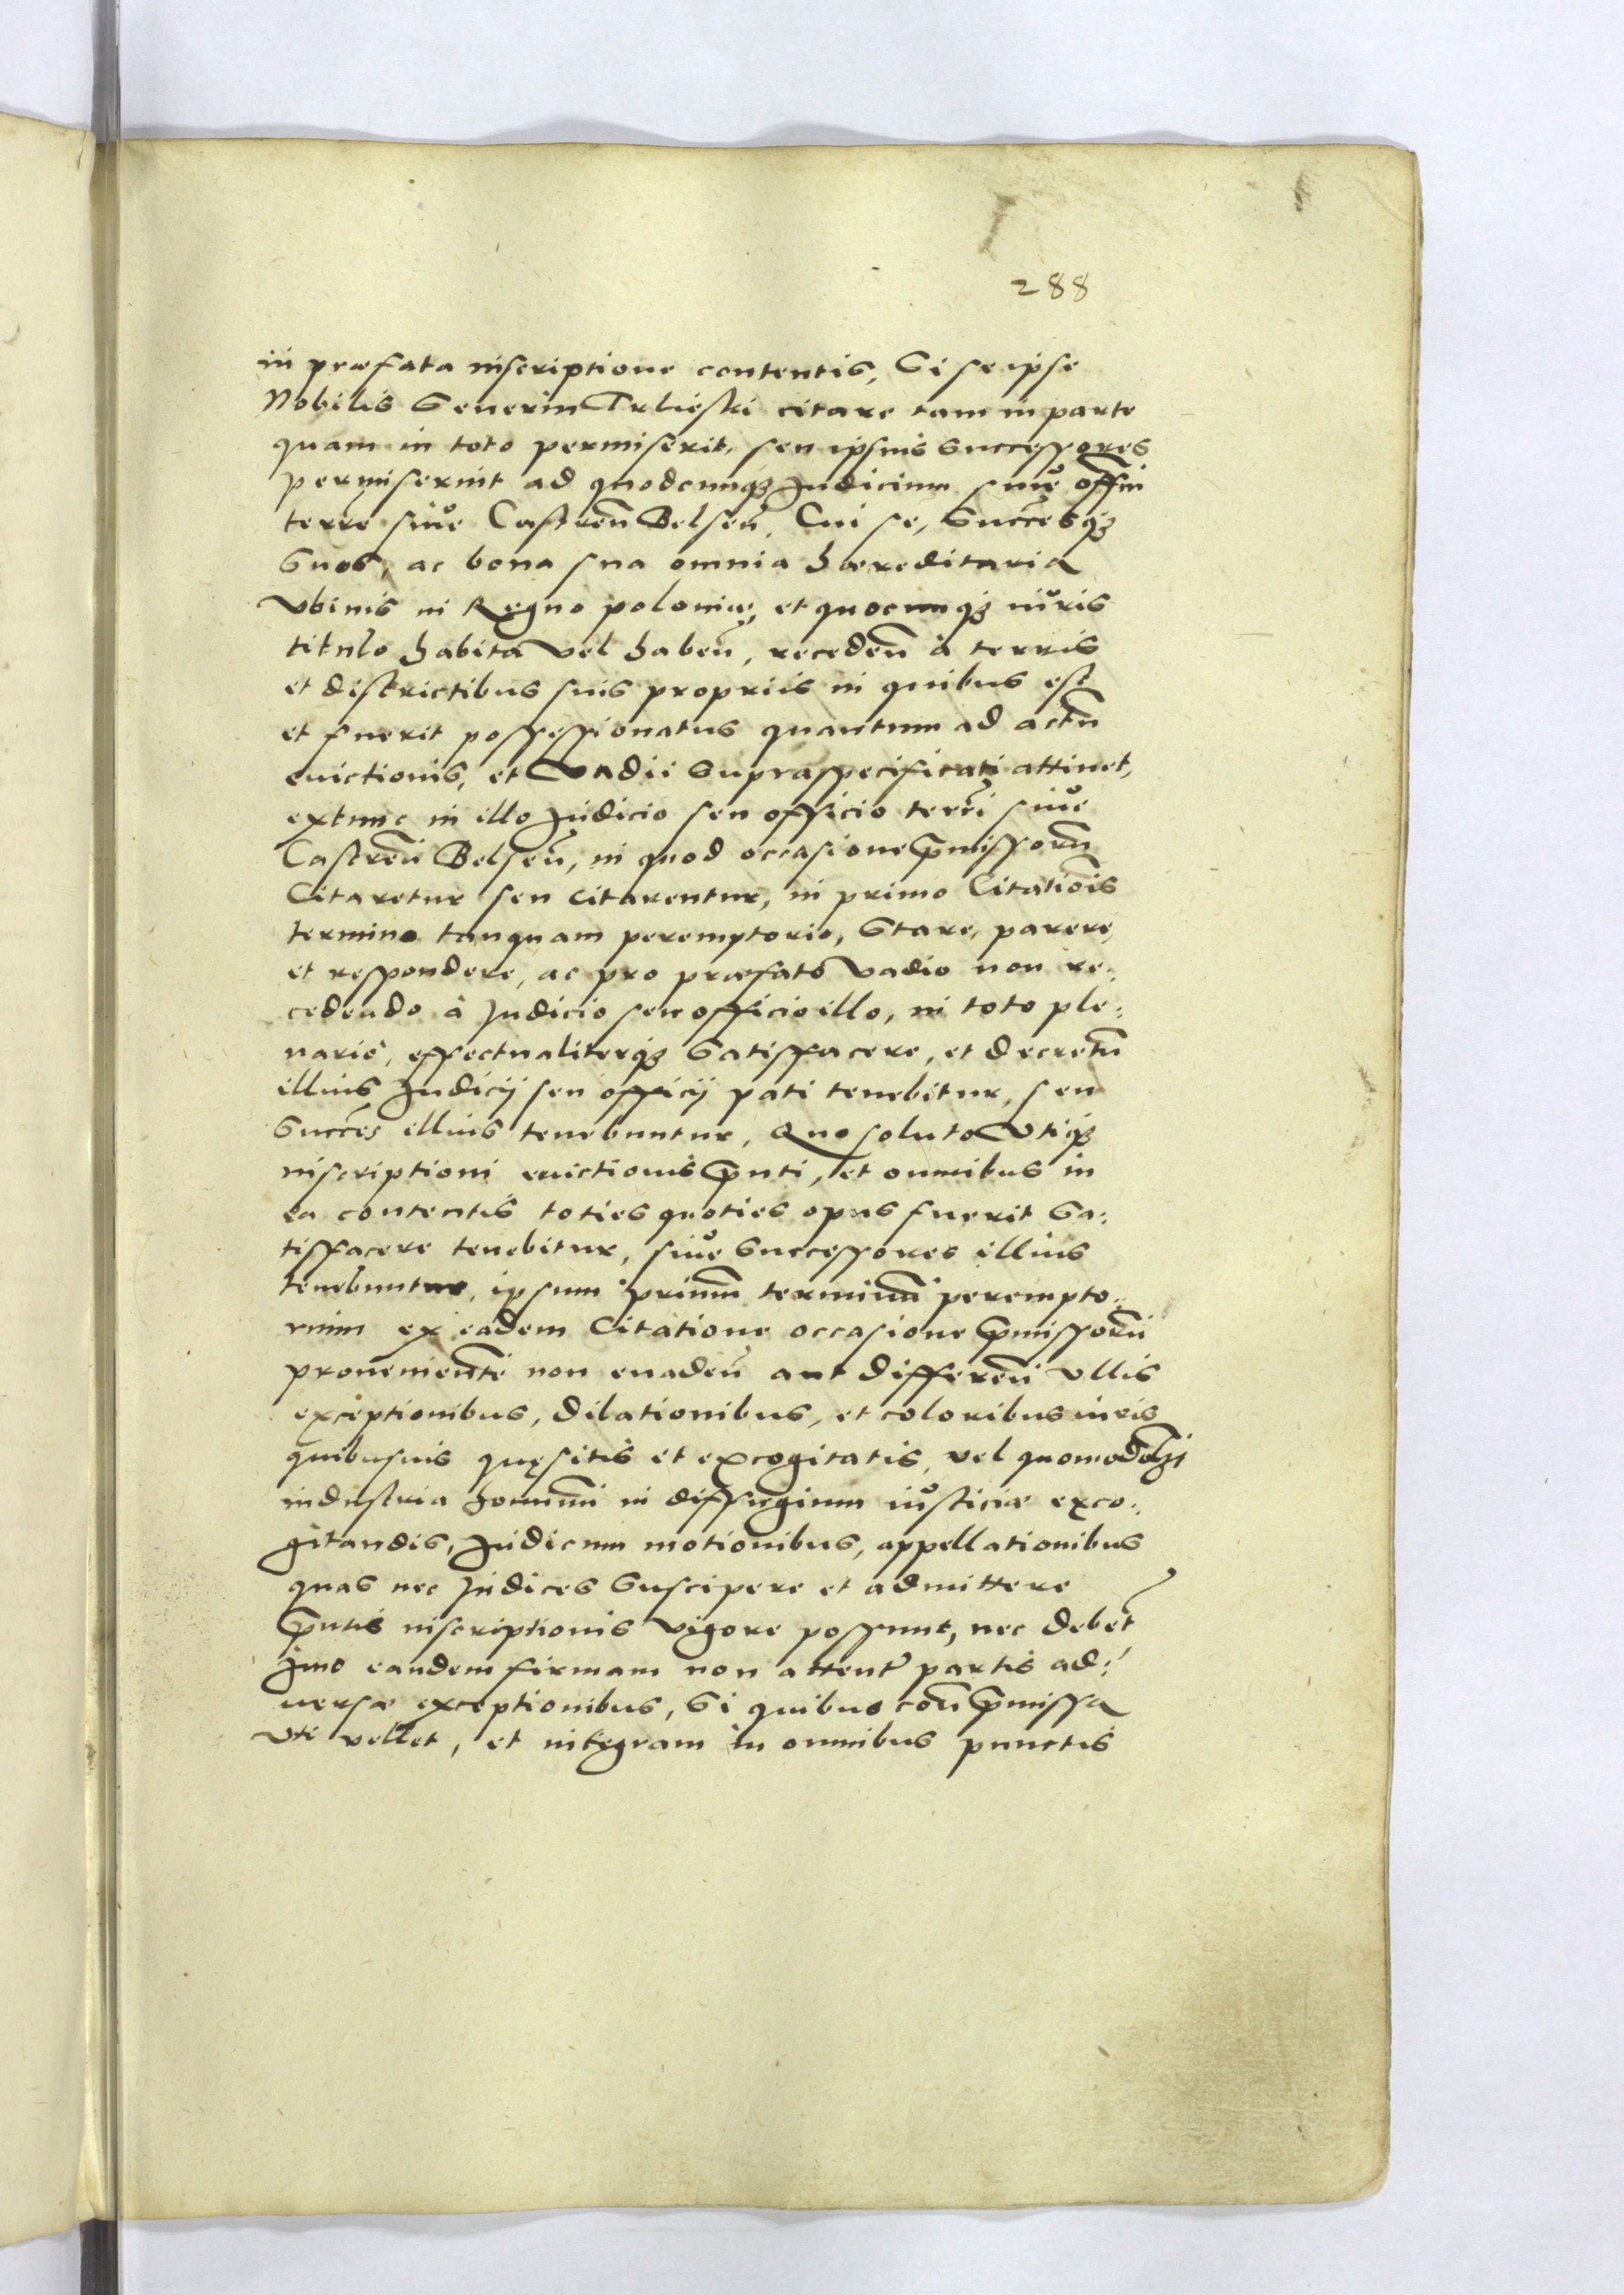 288
in præfata inscriptione contentis, Si se ipse
Nobilis Seuerin Trlieski citare tam in parte
quam in toto permiserit, seu ipsius Successores
permiserint ad quodcunq₃ Iudicium siue offm̃
terrẽ siue Castreñ Belseñ, Cui se, Succẽsq₃
Suos, ac bona sua omnia hæreditaria
vbiuis in Regno poloniæ, et quocunq₃ iuris
titulo habita vel habeñ, recedeñ à terris
et districtibus suis propriis in quibus est
et fuerit possessionatus quantum ad actũ
euictionis, et Vadii Supraspecificati attinet,
extunc in illo Iudicio seu officio terrĩ siue
Castreñ Belseñ, in quod occasione p̃missorũ
Citaretur seu citarentur, in primo Citatiõis
termino tanquam peremptorio, Stare, parere,
et respondere, ac pro præfato vadio non re:
cedendo à Iudicio seu officio illo, in toto ple:
nariè, effectualiterq₃ Satisfacere, et decretũ
illius Iudicij seu officij pati tenebitur, seu
Succẽs illius tenebuntur, Quo soluto Vtiq₃
inscriptioni euictionis p̃nti, et omnibus in
ea contentis toties quoties opus fuerit Sa:
tisfacere tenebitur, siue Successores illius
tenebuntur, ipsum primũ terminũ perempto:
rium ex eadem Citatione occasione p̃missorũ
prouenientẽ non euadeñ aut differeñ vllis
exceptionibus, dilationibus, et coloribus iuris
quibusuis quęsitis et excogitatis, vel quomodolĩ
industria hominũ in diffugium iusticiæ exco:
gitandis, Iudicum motionibus, appellationibus
quas nec Iudices Suscipere et admittere
p̃ntis inscriptionis vigore possunt, nec debeñt
Imo eandem firmam non attent̃ partis ad:
uersæ exceptionibus, Si quibus coñ p̃missa
vti vellet, et integram in omnibus punctis